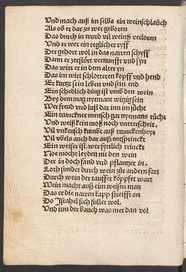 Und mach auß im selbs ein weinschlauch
Als ob er dar zu wer geboren
Das durch in wurd vil weinß verloren
Und er wer ein teglicher ryff
Der gehört wol in das narren schyff
Dann er zerstört vernunfft und syn
Das wirt er in dem alter yn
Das im wirt schlotteren kopff und hend
Er kurtzt sein leben und sein end
Ein schedlich ding ist umb den wein
Bey dem mag nyemant witzig sein
Wer freud und lust dar inn im sůcht
Ein truncken mensch gar nyemants růcht
Und weiß kein moß noch underscheit
Vil unkeusch kumbt auß trunckenheyt
Vil übels auch dar auß entspringt
Ein weiser ist wer syntlich trinckt
Noe mocht leyden nit den wein
Der in doch fand und pflantzet in
Loth sündt durch wein zůr andern fart
Durch wein der tauffer köpffet wart
Wein macht auß ein weisen man
Das er die narren kapp streifft an
Do Israhel sich füllet wol
Und inn der bauch was mer dan vol